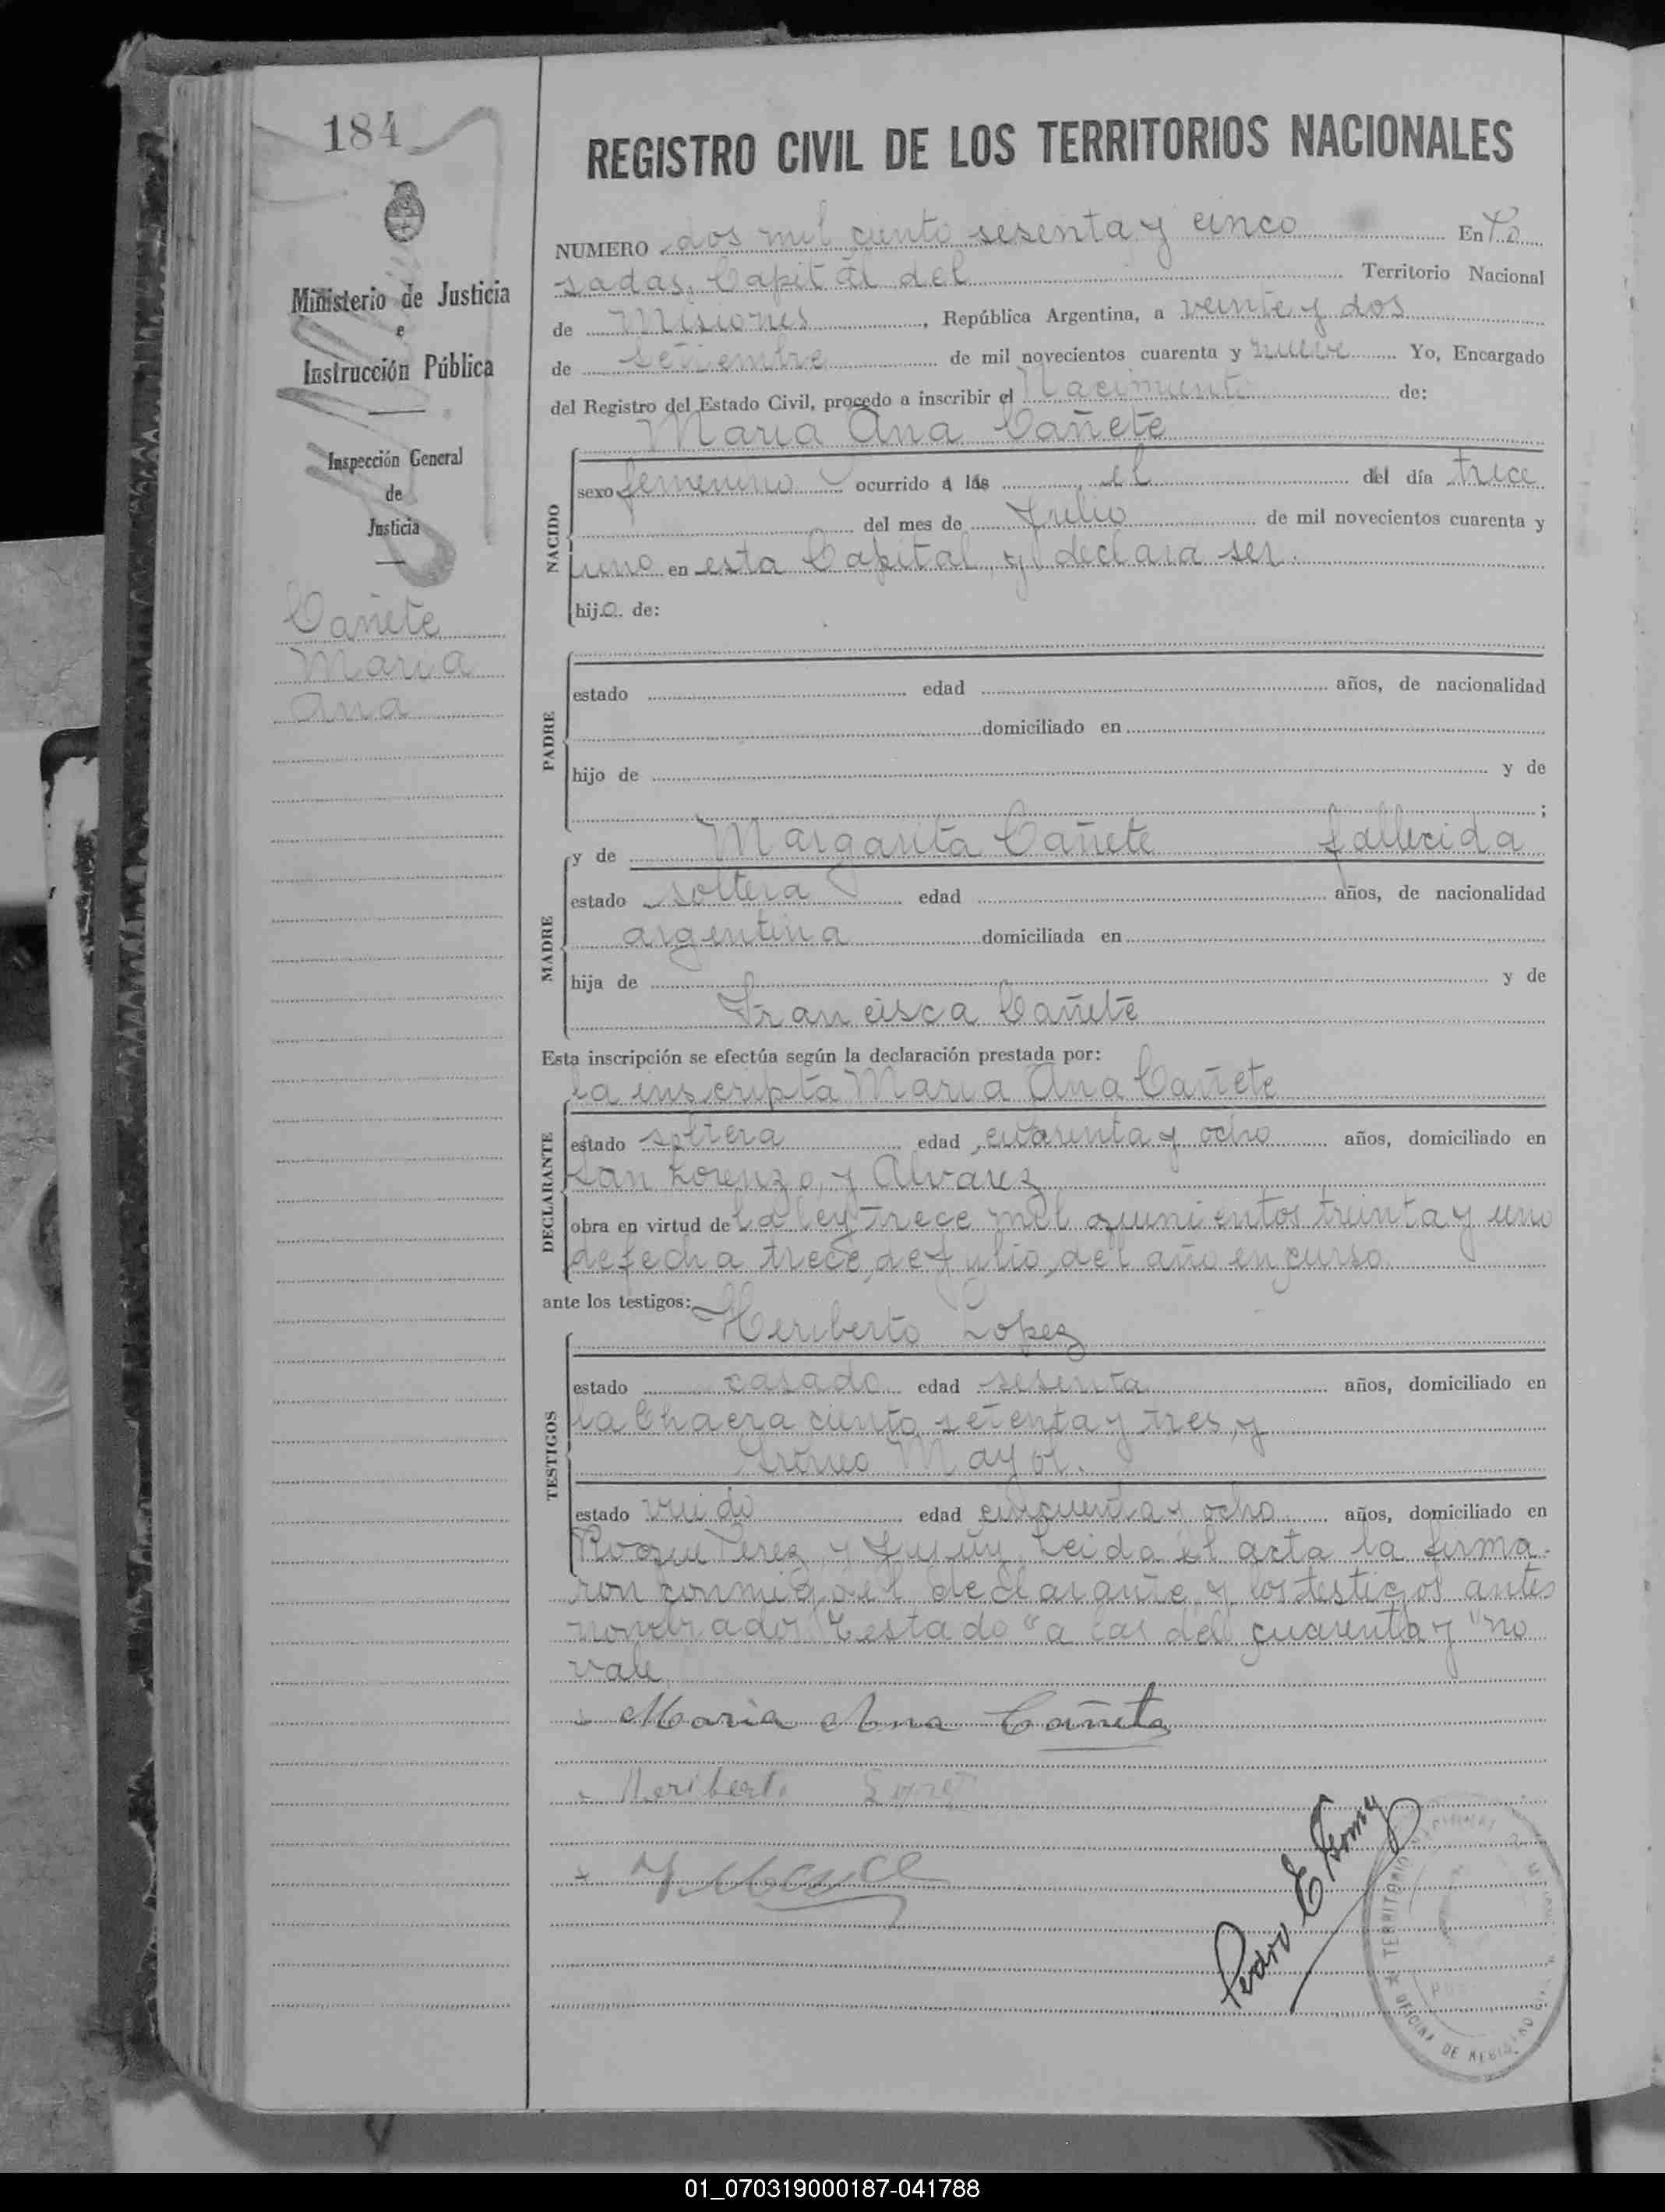 184
REGISTRO CIVIL DE LOS TERRITORIOS NACIONALES
Ministerio de Justicia
e
Instrucción Pública
Inspección General
de
Justicia
Cañete
Maria
Ana
NUMERO dos mil ciento sesenta y cinco En Po
sadas, Capital del Territorio Nacional
de Misiones, República Argentina, a veinte y dos
de setiembre de mil novecientos cuarenta y nueve Yo, Encargado
del Registro del Estado Civil, procedo a inscribir el Nacimiento de:
Maria Ana Cañete
NACIDO
sexo femenino ocurrido a las el del día trece
del mes de Julio de mil novecientos cuarenta y
uno en esta Capital, y declara ser.
hija de:
PADRE
estado edad años, de nacionalidad
domiciliado en
hijo de y de
;
MADRE
y de Margarita Cañete fallecida
estado soltera edad años, de nacionalidad
argentina domiciliada en
hija de y de
Francisca Cañete
Esta inscripción se efectúa según la declaración prestada por:
la inscripta Maria Ana Cañete
DECLARANTE
estado soltera edad cuarenta y ocho años, domiciliado en
San Lorenzo, y Alvarez
obra en virtud de la ley trece mil quinientos treinta y uno
de fecha trece, de Julio, del año en curso.
ante los testigos: Heriberto Lopez
TESTIGOS
estado casado edad sesenta años, domiciliado en
la Chacra ciento setenta y tres, y
Mayol.
estado viudo edad cincuenta y ocho años, domiciliado en
Roque Perez y Jujuy, Leida el acta la firma-
ron conmigo el declarante, y los testigos antes
nombrados Testado "a las del cuarenta y "no
vale
Maria Ana Cañete
Heriberto Lopez
Pedro E
TERRITORIO NACIONAL DE
OFICINA DE REGISTRO CIVIL
01_070319000187-041788